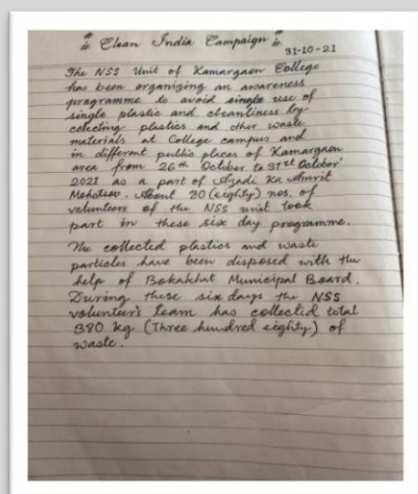 " Clean India Campaign "
31-10-21
The NSS Unit of Kamargaon College
has been organizing an awareness
programme to avoid single use of
single plastic and cleanliness by
celecting plastics and other waste
materials at College campus and
in different public places of Kamargaon
area from 26th October to 31st October'
2021 as a part of Azadi Ka Amrit
Mohotsov. About 80 (eighty) nos. of
volunteers of the NSS unit took
part in these six day programme.
The collected plastics and waste
particles have been disposed with the
help of Bokakhat Municipal Board.
During these six days the NSS
volunteer's team has collected total
380 kg (Three hundred eighty) of
waste.